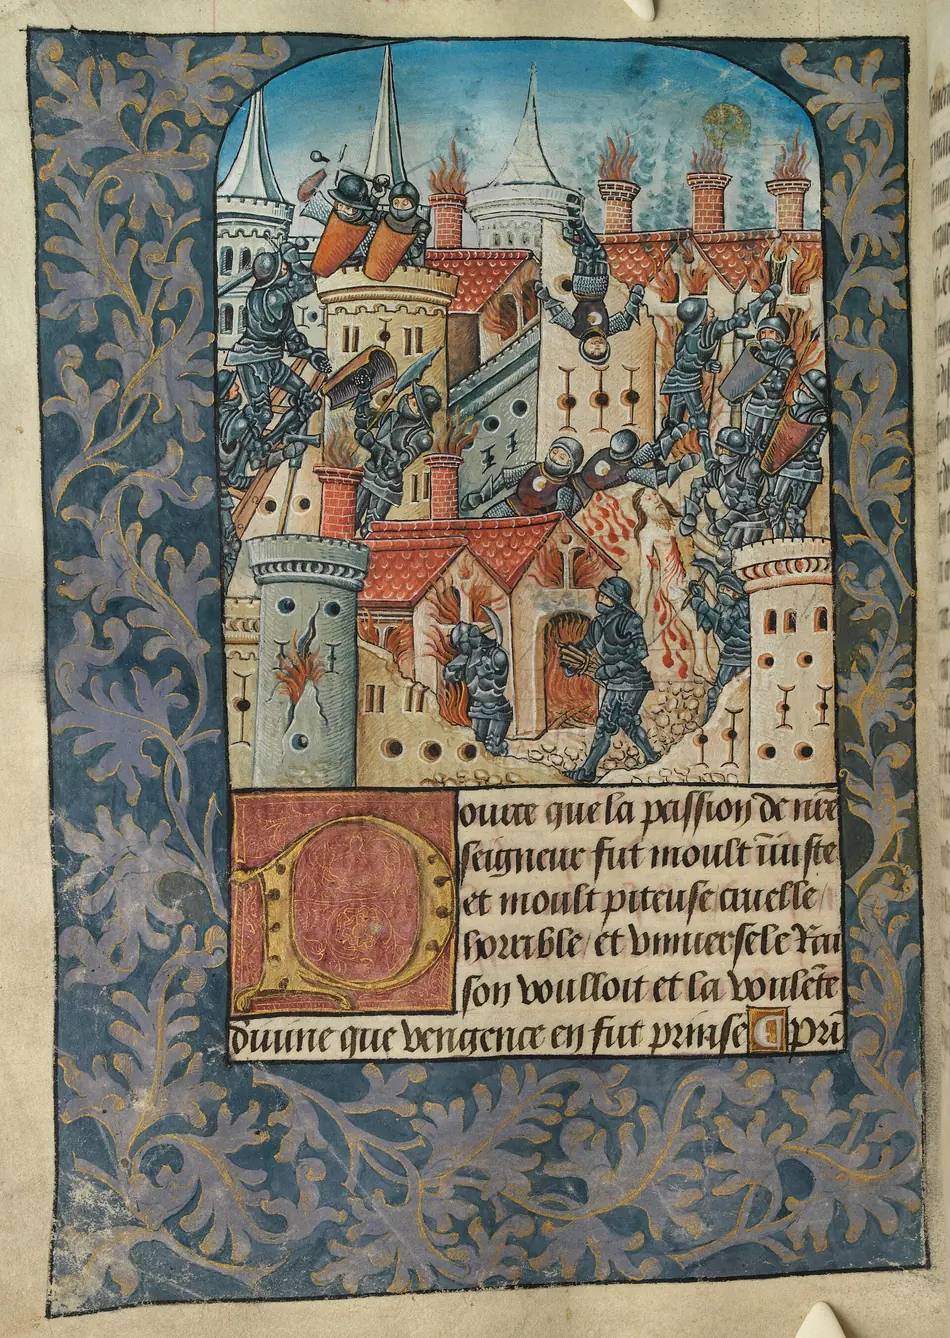 Dource que la passion de nr̄e
seigneur fut moult iniuste
et moult piteuse / cruelle /
horrible / et vniuersele Rai
son voulloit et la voulēte
diuine que vengence en fut prinse C pri